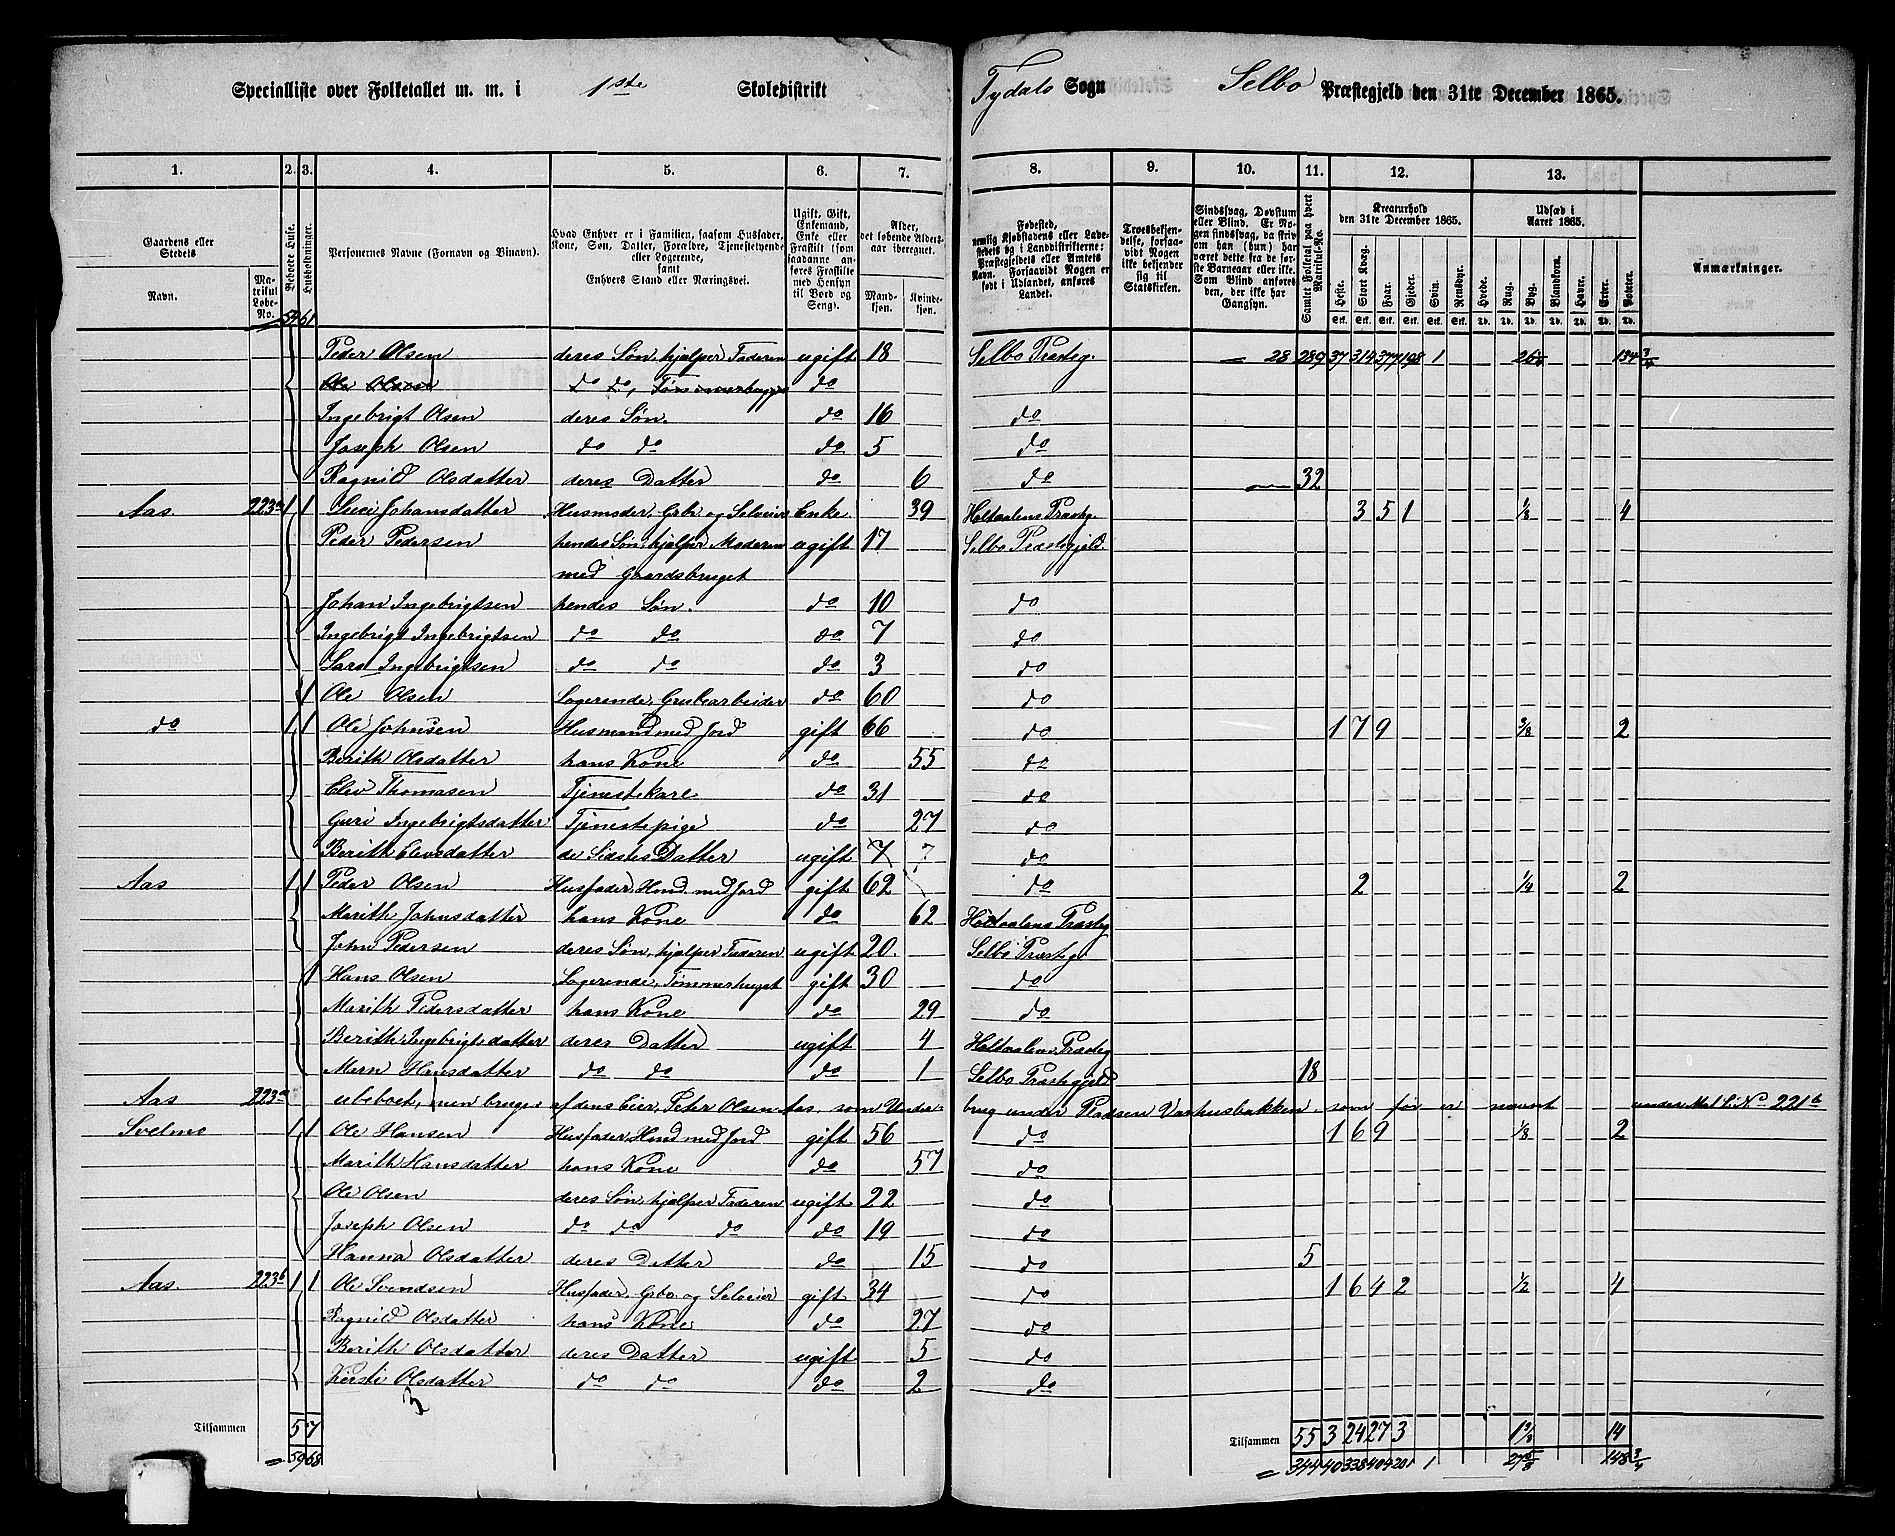 Specialliste over Folketallet m. m. i 1ste Skoledistrikt Tydals Sogn Selbo Præstegjeld den 31te December 1865.
1. 2. 3. 4. 5. 6. 7. 8. 9. 10. 11. 12. 13.
Gaardens eller Stedets Navn. Matrikul Løbe-No. Beboede Huse. Husholdninger. Personernes Navne (Fornavn og Binavn). Hvad Enhver er i Familien, saasom Husfader, Kone, Søn, Datter, Forældre, Tjenestetyende eller Logerende, samt Enhvers Stand eller Næringsvei. Ugift, Gift, Enkemand, Enke eller Fraskilt (som saadanne anføres Fraskilte med Hensyn til Bord og Seng). Alder, det løbende Aldersaar iberegnet. Mandkjøn. Kvindekjøn. Fødested, nemlig Kjøbstadens eller Ladestedets og i Landdistrikterne: Præstegjeldets eller Amtets Navn. Forsaavidt Nogen er født i Udlandet, anføres Landet. Troesbekjendelse, forsaavidt Nogen ikke bekjender sig til Statskirken. Sindssvag, Døvstum eller Blind. Er Nogen sindssvag, da skrives om han (hun) har været dette fra de første Barneaar eller ikke. Som Blind anføres den, der ikke har Gangsyn. Samlet Folketal paa hvert Matrikul-No. Kreaturhold den 31te December 1865. Heste. Stort Kvæg. Faar. Gjeder. Svin. Rensdyr. Udsæd i Aaret 1865. Hvede. Rug. Byg. Blandkorn. Havre. Erter. Poteter. Anmærkninger.
54 61
Peder Olsen deres Søn, hjælper Faderen ugift 18 Selbo Præsteg. 28 289 37 314 377 198 1 134 3/4
Ole Olsen do do, Tømmerhugger do
Ingebrigt Olsen deres Søn. do 16 do
Joseph Olsen do do do 5 do
Ragnild Olsdatter deres Datter do 6 do 32
Aas. 223a 1 1 Johansdatter Husmoder, Grbr og Selveier Enke 39 Holtaalens Præsteg. 3 5 1 1/8 4
Peder Pedersen hendes Søn, hjælper Moderen ugift 17 Selbo Præstegjeld
med Gaardsbruget
Johan Ingebrigtsen hendes Søn. do 10 do
Ingebrigt Ingebrigtsen do do do 7 do
Lars Ingebrigtsen do do do 3 do
1 Ole Olsen Logerende, Grubearbeider do 60 do
do 1 1 Ole Johnsen Husmand med Jord gift 66 do 1 7 9 3/8 2
Berith Olsdatter hans Kone do 55 do
Elev Thomasen Tjenestekarl do 31 do
Guri Ingebrigtsdatter Tjenestepige do 27 do
Berith Elevsdatter de Sidstes Datter ugift 7 7 do
Aas 1 1 Peder Olsen Husfader, Hmd. med Jord gift 62 do 2 1/4 2
Marith Johnsdatter hans Kone do 62 Holtaalens Præsteg
John Pedersen deres Søn, hjælper Faderen ugift 20. Selbo Præsteg.
1 Hans Olsen Logerende, Tømmerhugst gift 30 do
Marith Pedersdatter hans Kone do 29 do
Berith Ingebrigtsdatter deres Datter ugift 4 Holtaalens Præsteg
Marn Hansdatter do do do 1 Selbo Præstegjeld 18
Aas 223a ubeboet, men bruges af dens Eier, Peter Olsen Aas, som Underbrug under Pladsen Varhusbakken som før er nævnt under Mat. L. No 221b
Svelmo 1 1 Ole Hansen Husfader, Hmd med Jord gift 56 do 1 6 9 1/8 2
Marith Hansdatter hans Kone do 57 do
Ole Olsen deres Søn, hjælper Faderen ugift 22 do
Joseph Olsen do do do do 19 do
Hanna Olsdatter deres Datter do 15 do 5
Aas 223b 1 1 Ole Svendsen Husfader, Grbr. og Selveier gift 34 do 1 6 4 2 1/2 4
Ragnild Olsdatter hans Kone do 27 do
Berith Olsdatter deres Datter ugift 5 do
Kirsti Olsdatter do do do 2 do
Tilsammen 5 7 Tilsammen 55 3 24 27 3 14
59 68 344 40 338 404 201 1 148 3/4